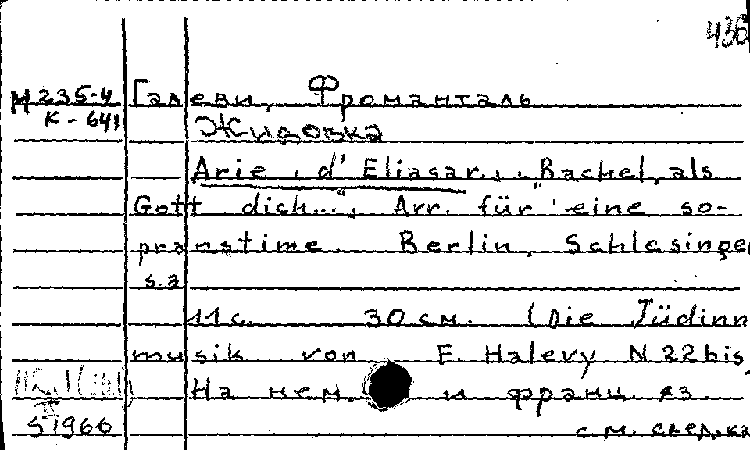 436
М 235-4 Галеви, Фроманталь
К-641 Жидовка
Arie d' Eliasar.,. "Rachel, als
Gott dich...", Arr. für eine so-
pranstime. Berlin, Schlesinge
s.a
11 с. 30 см. (Die Jüdinn
musik von F. Halevy N 22 bis
На нем. и франц. яз.
51966
см. след. ка